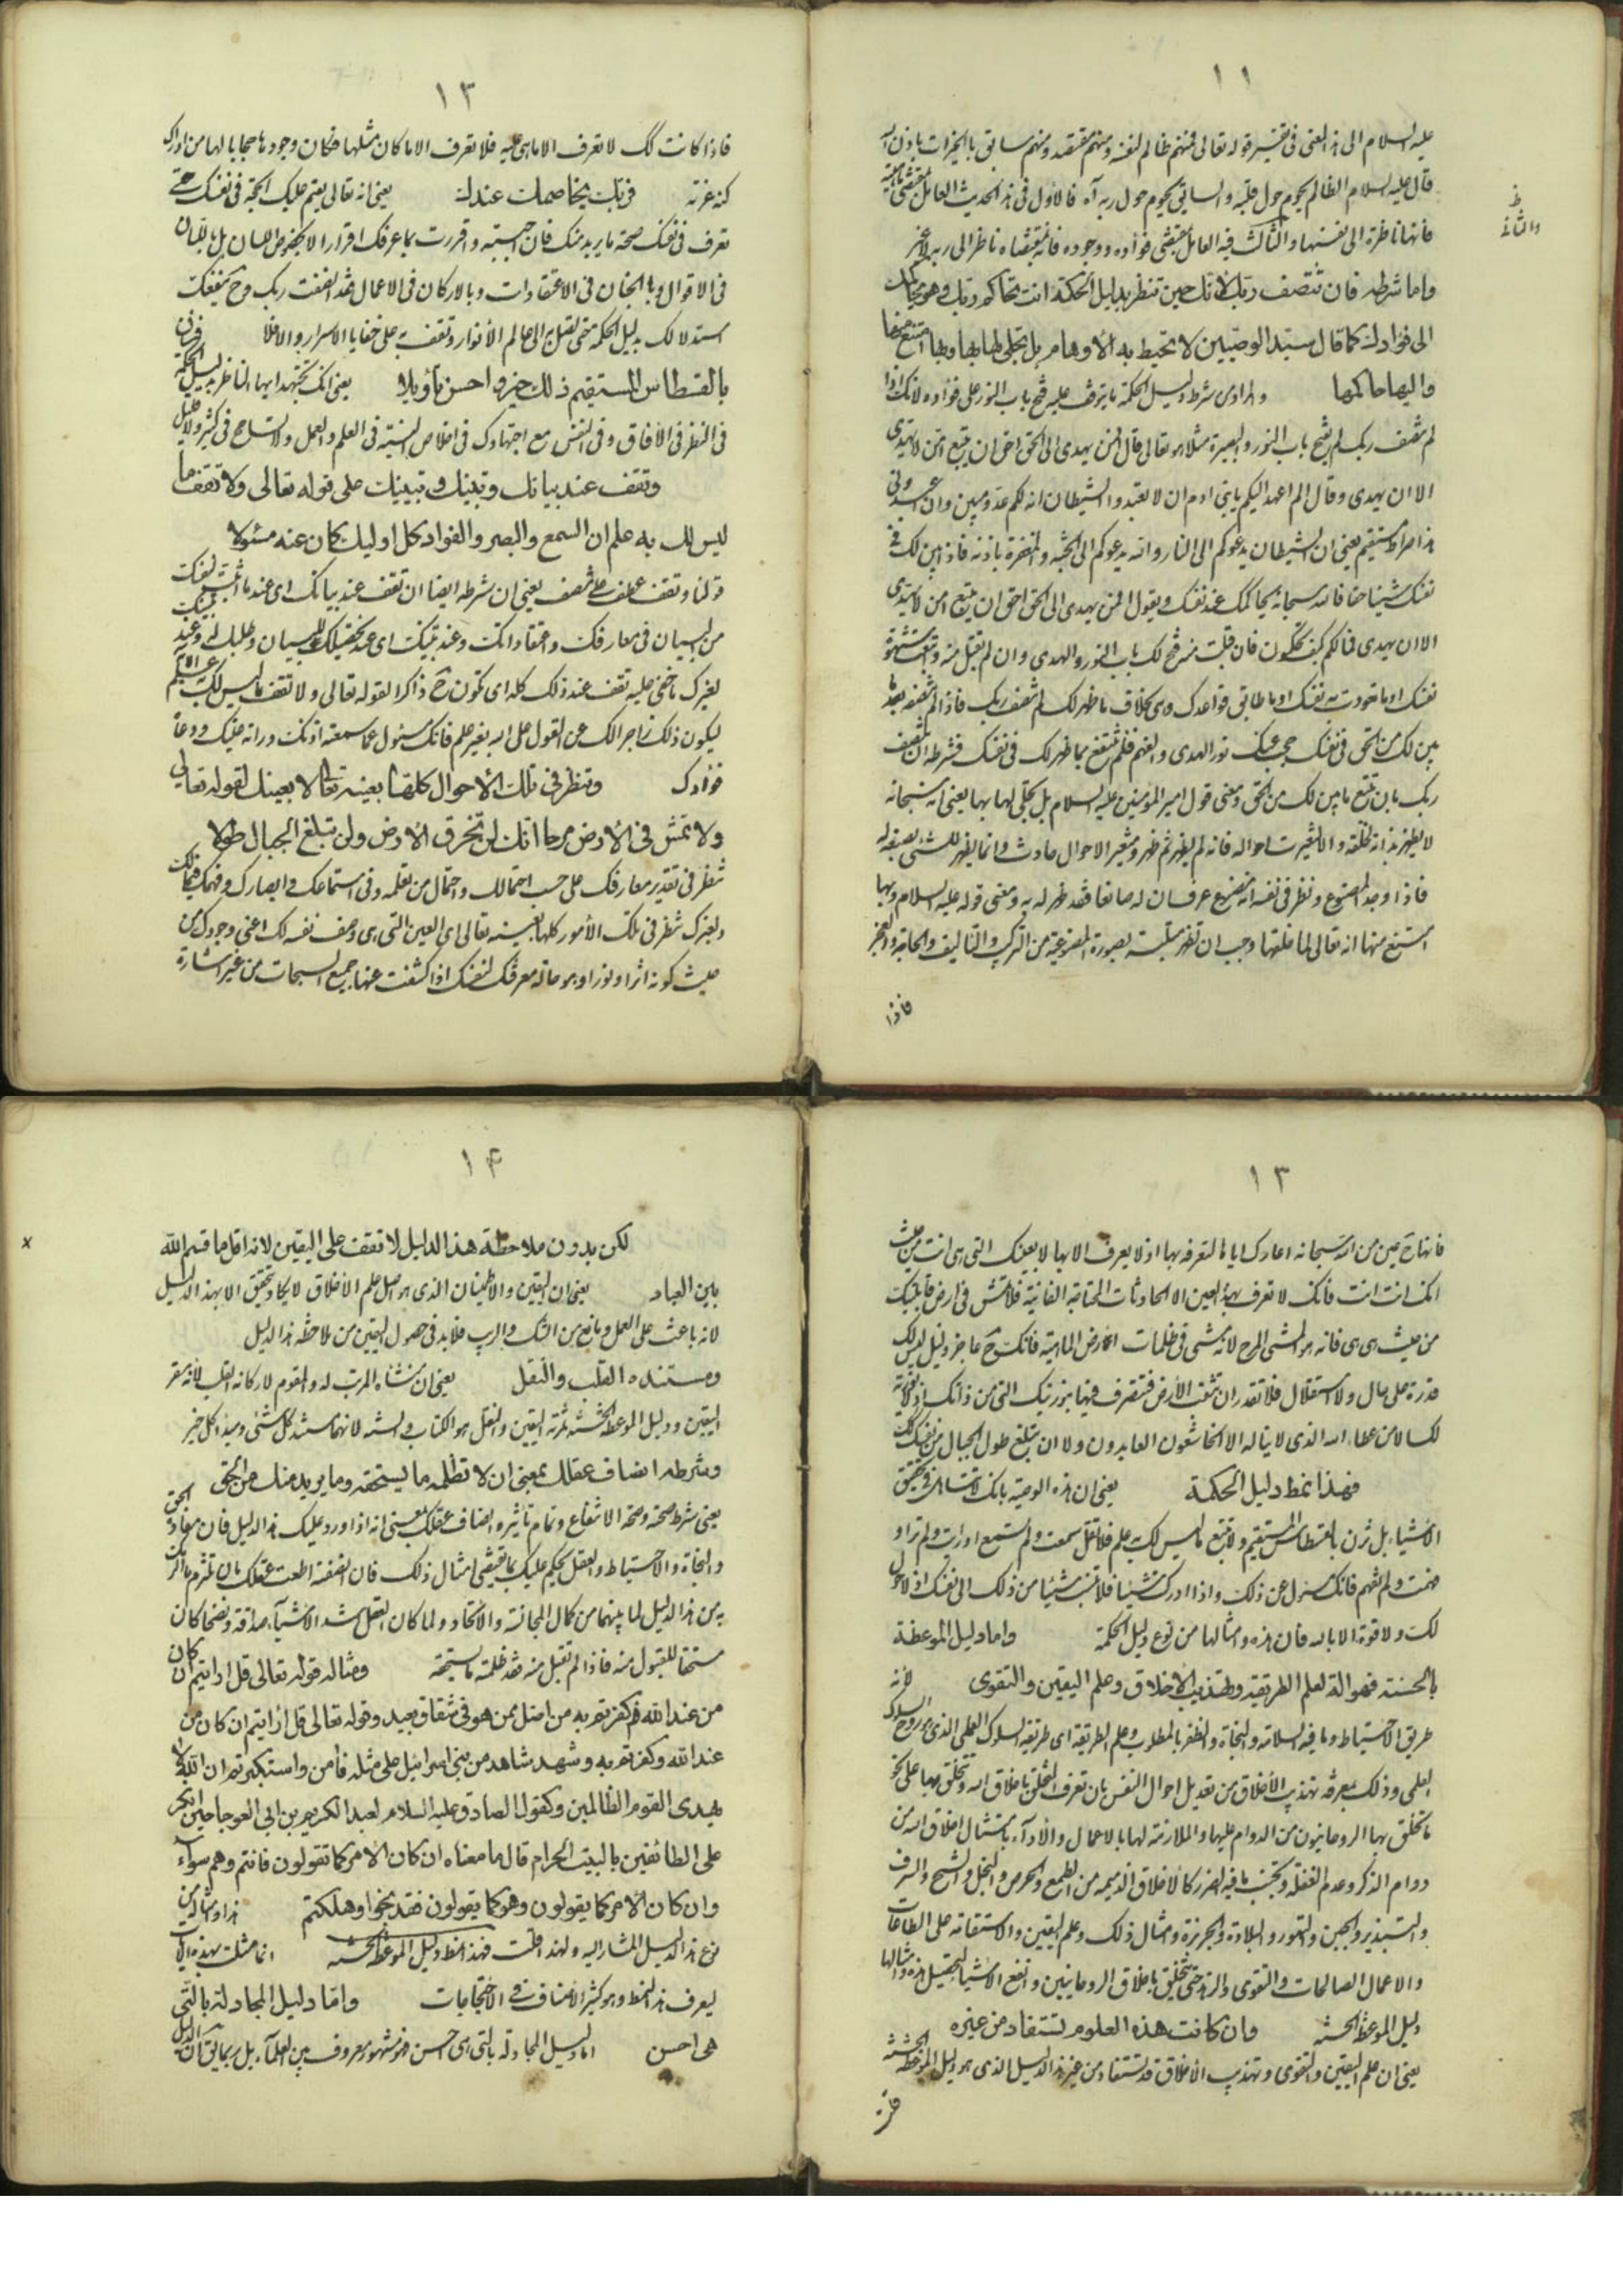 ١١
عليه السلام الى هذا المعنى فى تفسير قوله تعالى فمنهم ظالم لنفسه ومنهم مقتصد ومنهم سابق بالخيرات باذن الله
قال عليه السلام الظالم يحوم حول قلبه والسابق يحوم حول ربه آه فالاول فى هذا الحديث العامل بمقتضى
فانها ناظرة الى نفسها والثالث فيه العامل بمقتضى فؤاده ووجوده فانه بمقتضاه ناظر الى ربه لا غير
واما شرطه فان تنصف ربك لانك حين تنظر بدليل الحكمة انت تحاكم ربك وهو يحاكمك
الى فؤادك كما قال سيد الوصيين لا تحيط به الأوهام بل تجلى لها بها وبها امتنع منها
واليها حاكمها والمراد من شرط دليل الحكمة ما يتوقف عليه فتح باب النور على فؤاده لانك اذا
لم تنصف ربك لم يفتح باب النور والبصيرة مثلا هو تعالى قال افمن يهدى الى الحق احق ان يتبع امن لا يهدى
الا ان يهدى وقال الم اعهد اليكم يا بنى ادم ان لا تعبدوا الشيطان انه لكم عدو مبين وان اعبدونى
هذا صراط مستقيم يعنى ان الشيطان يدعوكم الى النار والله يدعوكم الى الجنة والمغفرة باذنه فاذا تبين لك فى
نفسك شيئا حقا فالله سبحانه يحاكمك عند نفسك ويقول افمن يهدى الى الحق احق ان يتبع امن لا يهدى
الا ان يهدى فما لكم كيف تحكمون فان قبلت منه فتح لك باب النور والهدى وان لم تقبل منه واتبعت شهوة
نفسك او ما تعودت به نفسك او ما طابق قواعدك وهى بخلاف ما ظهر لك لم تنصف ربك فاذا لم تنصفه بعد ما
بين لك من الحق فى نفسك حجب عنك نور الهدى والفهم فلم تنتفع بما ظهر لك فى نفسك فشرطه ان تنصف
ربك بان تتبع ما بين لك من الحق ومعنى قول امير المؤمنين عليه السلام بل تجلى لها بها يعنى انه سبحانه
لا يظهر بذاته لخلقه والا لتغيرت احواله فانه لم يظهر ثم ظهر ومتغير الاحوال حادث وانما يظهر للشئ بصنعه له
فاذا وجد المصنوع ونظر فى نفسه انه مصنوع عرف ان له صانعا فقد ظهر له به ومعنى قوله عليه السلام وبها
امتنع منها انه تعالى لما خلقها وجب ان تظهر متلبسة بصورة المصنوعية من التركيب والتأليف والحاجة والعجز
فاذا
١٣
فاذا كانت كك لا تعرف الا ما هى عليه فلا تعرف الا ما كان مثلها فكان وجودها حجابا لها من ادراك
كنه عزته فربك يخاصمك عندك يعنى انه تعالى يقيم عليك الحجة فى نفسك حتى
تعرف فى نفسك صحة ما يريد منك فان اجبته واقررت بما عرفك اقرارا لا بمحض اللسان بل باللسان
فى الاقوال وبالجنان فى الاعتقادات وبالاركان فى الاعمال فقد انصفت ربك وح ينفعك
استدلالك بدليل الحكمة حتى تصل به الى عالم الأنوار وتقف به على خفايا الاسرار والا فلا فزن
بالقسطاس المستقيم ذلك خير واحسن تأويلا يعنى انك تجتهد ايها الناظر بدليل الحكمة
فى النظر فى الأفاق وفى النفس مع اجتهادك فى اخلاص النية فى العلم والعمل ولا تسامح فى كثير ولا قليل
وتقف عند بيانك وتبينك وتبيينك على قوله تعالى ولا تقف ما
ليس لك به علم ان السمع والبصر والفؤاد كل اوليك كان عنه مسئولا
قولنا وتقف عطف على تنصف يعنى ان شرطه ايضا ان تقف عند بيانك اى عند ما أثبته لنفسك
من البيان فى معارفك واعتقاداتك وعند تبينك اى عند تحصيلك للبيان وطلبك له وعند تبيينك
لغيرك ما خفى عليه تقف عند ذلك كله اى تكون ح ذاكرا لقوله تعالى ولا تقف ما ليس لك به علم الآية
ليكون ذلك زاجرا لك عن القول على الله بغير علم فانك مسئول عما سمعته اذنك ورأته عينك ووعاه
فؤادك وتنظر فى تلك الأحوال كلها بعينه تعالى لا بعينك لقوله تعالى
ولا تمش فى الأرض مرحا انك لن تخرق الأرض ولن تبلغ الجبال طولا
تنظر فى تقدير معارفك على حسب احتمالك واحتمال من تعلمه وفى استماعك وابصارك وفهمك فى تلك
ولغيرك تنظر فى تلك الأمور كلها بعينه تعالى اى العين التى هى وصف نفسه لك اعنى وجودك من
حيث كونه اثرا ونورا وهو حالة معرفتك لنفسك اذا كشفت عنها جميع السبحات من غير اشارة
١٣
فانها ح عين من الله سبحانه اعارك اياها لتعرفه بها اذ لا يعرف الا بها لا بعينك التى هى انت من حيث
انك انت انت فانك لا تعرف بهذه العين الا الحادثات المحتاجة الفانية فلا تمش فى ارض ماهيتك
من حيث هى هى فانه هو المشى المرح لانه مشى فى ظلمات ارض الماهية فانك ح عاجز ذليل ليس لك
قدرة على حال ولا استقلال فلا تقدر ان تثقب الأرض فتتصرف فيها بنورتك التى من ذاتك اذ لا نورية
لك الا من عطاء الله الذى لا يناله الا الخاشعون العابدون ولا ان تبلغ طول الجبال من نفسك
فهذا نمط دليل الحكمة يعنى ان هذه الوصية بانك لا تتساهل فى تحقيق
الأشياء بل تزن بالقسطاس المستقيم ولا تتبع ما ليس لك به علم فلا تقل سمعت ولم تستمع او رايت ولم تر او
فهمت ولم تفهم فانك مسئول عن ذلك واذا ادركت شيئا فلا تنسب شيئا من ذلك الى نفسك اذ لا حول
لك ولا قوة الا بالله فان هذه وامثالها من نوع دليل الحكمة واما دليل الموعظة
بالحسنة فهو الة لعلم الطريقة وتهذيب الأخلاق وعلم اليقين والتقوى لأنه
طريق الاحتياط وما فيه السلامة والنجاة والظفر بالمطلوب وعلم الطريقة اى طريقة السلوك العلمى الذى هو روح السلوك
العلمى وذلك بمعرفة تهذيب الأخلاق من تعديل احوال النفس بان تعرف التخلق باخلاق الله وتتخلق بها على نحو
ما تخلق بها الروحانيون من الدوام عليها والملازمة لها بالاعمال والأداء بامتثال اخلاق الله من
دوام الذكر وعدم الغفلة وتجنب ما فيه الضرر كالأخلاق الذميمة من الطمع والحرص والبخل والشح والسرف
والتبذير والجبن والتهور والبلادة والجربزة وامثال ذلك وعلم اليقين والاستقامة على الطاعات
والاعمال الصالحات والتقوى والزهد حتى تتخلق باخلاق الروحانيين وانفع الأشياء لتحصيل هذه وامثالها
دليل الموعظة الحسنة وان كانت هذه العلوم تستفاد من غيره
يعنى ان علم اليقين والتقوى وتهذيب الأخلاق قد تستفاد من غير هذا الدليل الذى هو دليل الموعظة الحسنة
١۴
لكن بدون ملاحظة هذا الدليل لا تقف على اليقين لانه اقل ما قسم الله
بين العباد يعنى ان اليقين والاطمينان الذى هو اصل علم الأخلاق لا يكاد يتحقق الا بهذا الدليل
لانه باعث على العمل ومانع من الشك والريب فلا بد فى حصول اليقين من ملاحظة هذا الدليل
ومستنده القلب والنقل يعنى ان منشاه المرتب له والمقوم لاركانه القلب لأنه مقر
اليقين ودليل الموعظة الحسنة ثمرته اليقين والنقل هو الكتاب والسنة لانهما مستند كل شئ ومبدأ كل خير
وشرطه انصاف عقلك بمعنى ان لا تظلمه ما يستحقه وما يريد منك من الحق
يعنى شرط صحته وصحة الانتفاع وتمام تأثيره انصاف عقلك بمعنى انه اذا اورد عليك هذا الدليل فان مفاده الحق
والنجاة والاحتياط والعقل يحكم عليك بما يقتضى امتثال ذلك فان انصفته اطعت عقلك بان تلتزم ما الزمك
به من هذا الدليل لما بينهما من كمال المجانسة والاتحاد ولما كان العقل اشد الأشياء صداقة ونصحا كان
مستحقا للقبول منه فاذا لم تقبل منه فقد ظلمته ما يستحقه ومثاله قوله تعالى قل ارايتم ان كان
من عند الله ثم كفرتم به من اضل ممن هو فى شقاق بعيد وقوله تعالى قل ارايتم ان كان من
عند الله وكفرتم به وشهد شاهد من بنى اسرائيل على مثله فأمن واستكبرتم ان الله لا
يهدى القوم الظالمين وكقول الصادق عليه السلام لعبد الكريم بن ابى العوجا حين انكر
على الطائفين بالبيت الحرام قال ما معناه ان كان الأمر كما تقولون فانتم وهم سواء
وان كان الأمر كما يقولون وهو كما يقولون فقد نجوا وهلكتم هذا وامثاله من
نوع هذا الدليل المشار اليه ولهذا قلت فهذا نمط دليل الموعظة الحسنة انما مثلت بهذه الآيات
ليعرف هذا النمط وهو كثير الأصناف فى الاحتجاجات واما دليل المجادلة بالتى
هى احسن اما دليل المجادلة بالتى هى احسن فهو مشهور معروف بين العلماء بل